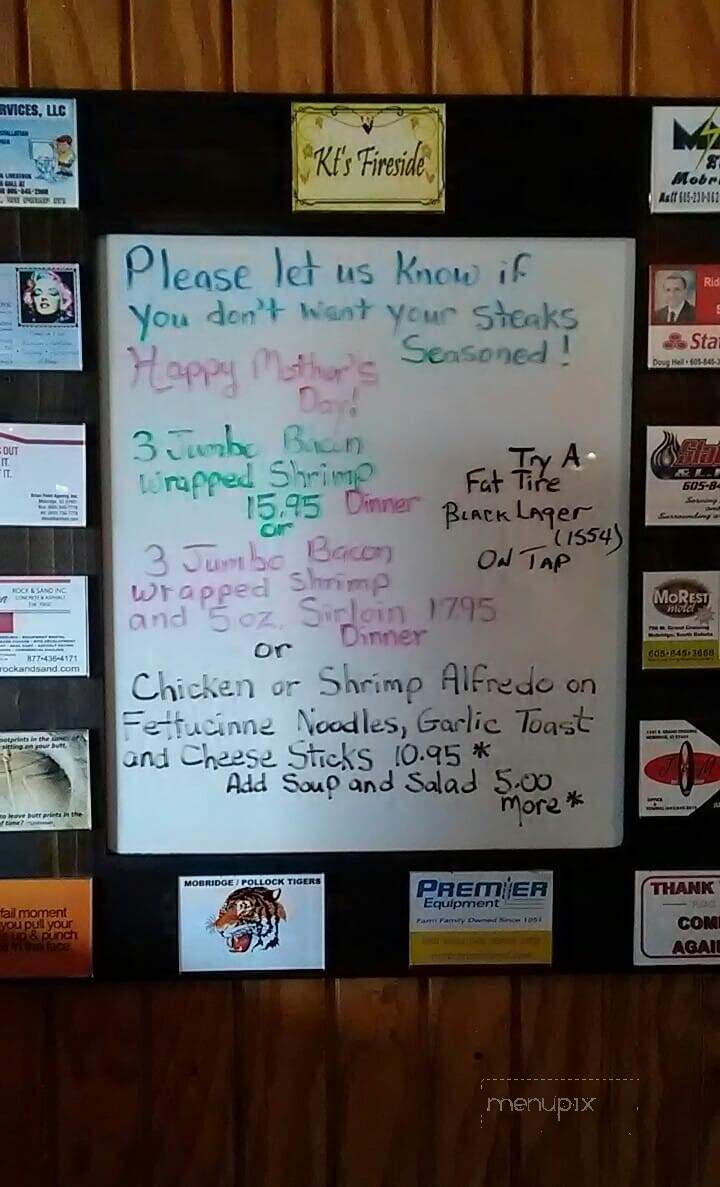 RVICES, LLC
Kt's Fireside
Mobri
Please let us know if
you don't want your steaks
Seasoned!
Happy Mother's
Day!
3 Jumbo Bacon
wrapped Shrimp
15.95 Dinner
or
3 Jumbo Bacon
wrapped Shrimp
and 5 oz. Sirloin 17.95
Dinner
or
Try A
Fat Tire
Black Lager
(1554)
On Tap
Chicken or Shrimp Alfredo on
Fettucinne Noodles, Garlic Toast
and Cheese Sticks 10.95 *
Add Soup and Salad 5.00
more *
Rid
Sta
Doug Heil
OUT
IT.
F IT.
605-8
ROCK & SAND INC.
877-436-4171
rockandsand.com
MoRest
motel
605-845-3668
ootprints in the sands of
sitting on your butt.
to leave butt prints in the
f time?
fail moment
you pull your
up & punch
in the face
MOBRIDGE / POLLOCK TIGERS
PREMIER
Equipment
Farm Family Owned Since 1051
THANK
COM
AGAI
menupix